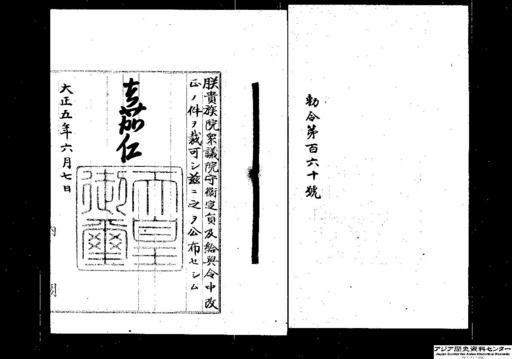 勅令第百六十號
朕貴族院衆議院守衞定員及給與令中改
正ノ件ヲ裁可シ茲ニ之ヲ公布セシム
嘉仁
天皇
御璽
大正五年六月七日
内
閣
アジア歴史資料センター
Japan Center for Asian Historical Records